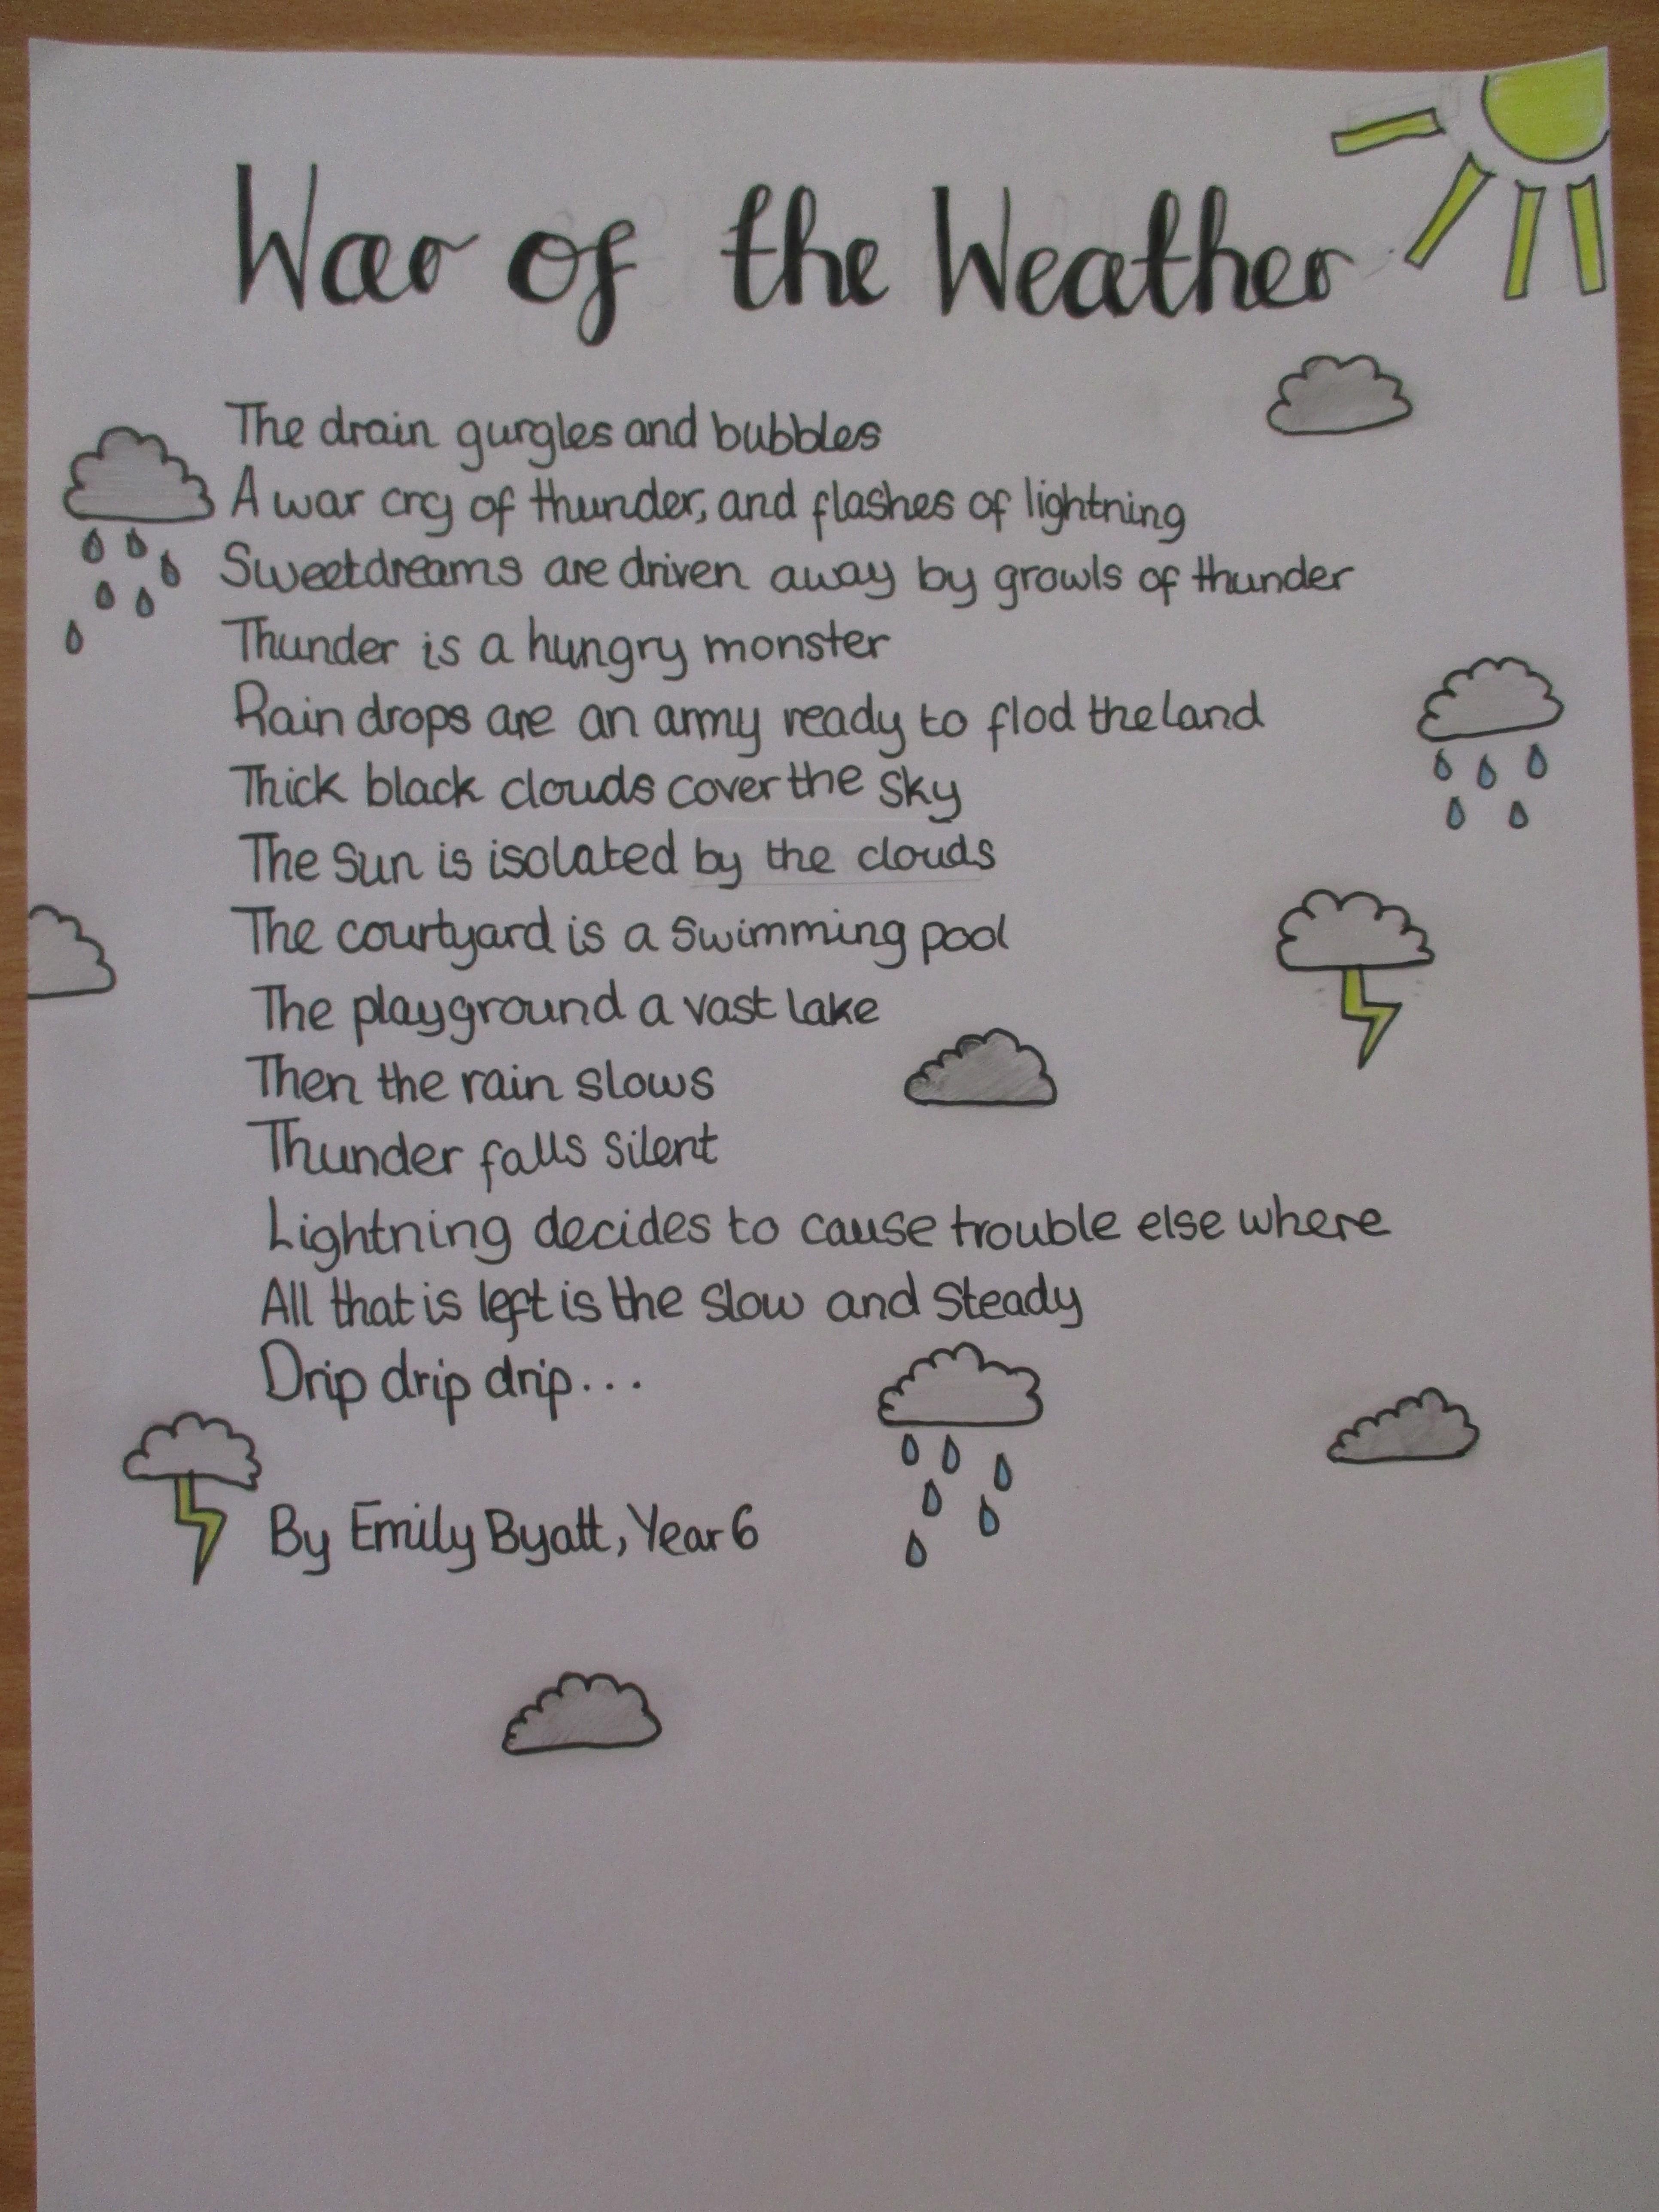 War of the Weather
The drain gurgles and bubbles
A war cry of thunder, and flashes of lightning
Sweetdreams are driven away by growls of thunder
Thunder is a hungry monster
Rain drops are an army ready to flod the land
Thick black clouds cover the sky
The Sun is isolated by the clouds
The courtyard is a swimming pool
The playground a vast lake
Then the rain slows
Thunder falls silent
Lightning decides to cause trouble else where
All that is left is the slow and steady
Drip drip drip...
By Emily Byatt, Year 6